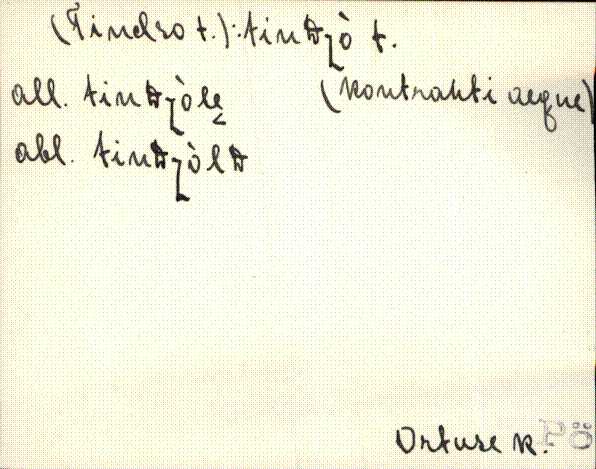 (Tindzo t.): tinD̵ʒò t.
all. tinD̵ʒòlę (kontrahti aeque)
abl. tinD̵ʒòlD̵
Ortuse k. PÖ